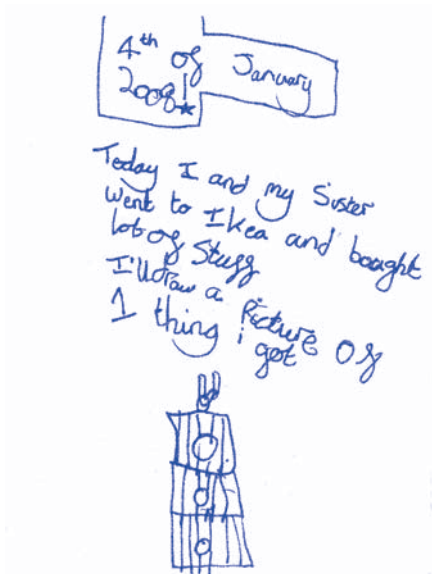 4th of January
2009!
Today I and my Sister
went to Ikea and bought
lot of Stuff
I'll draw a Picture of
1 thing i got